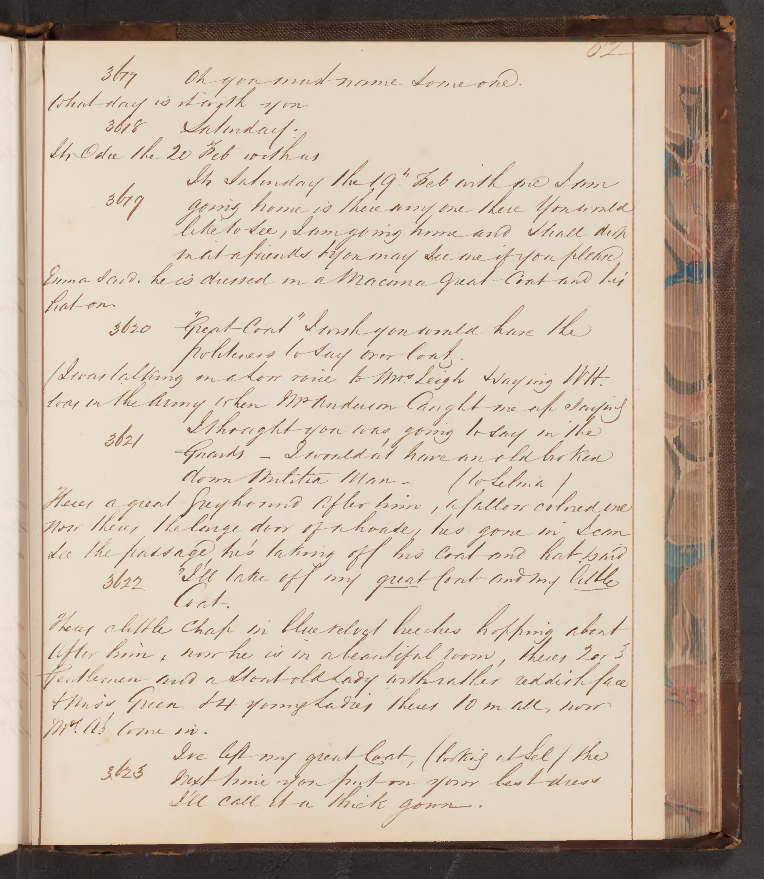 62
3617 Oh you must name some one.
What day is it with you
3618 Saturday.
It's O dee the 20 Feb with us
3619 Its Saturday the 19th Feb with me I am
going home is there any one there You would
like to see, I am going home and shall drop
in at a friends & you may see me if you please,
Emma said. he is dressed in a Great Coat and his
hat on.
3620 "Great Coat" I wish you would have the
politeness to say over Coat.
(I was talking in a low voice to Mrs Leigh & saying WH
was in the Army when Mr Anderson Caught me up saying
3621 I thought you was going to say in the
Guards – I wouldn't have an old broken
down Militia Man – (to Selina)
Theres a great Greyhound after him, a fallow colored one
Now theres the large door of a house, he's gone in I can
see the passage, he's taking off his Coat and hat & said
3622 I'll take off my great Coat and my little
Coat.
Theres a little Chap in blue velvet breeches hopping about
after him, now he is in a beautiful room, theres 2 or 3
Gentlemen and a stout old Lady with rather reddish face
& Miss Green & 4 young Ladies theres 10 in all, now
Mr. A's come in.
3623 I've left my great Coat, (looking at Sel) the
next time you put on your best dress
I'll call it a thick gown.